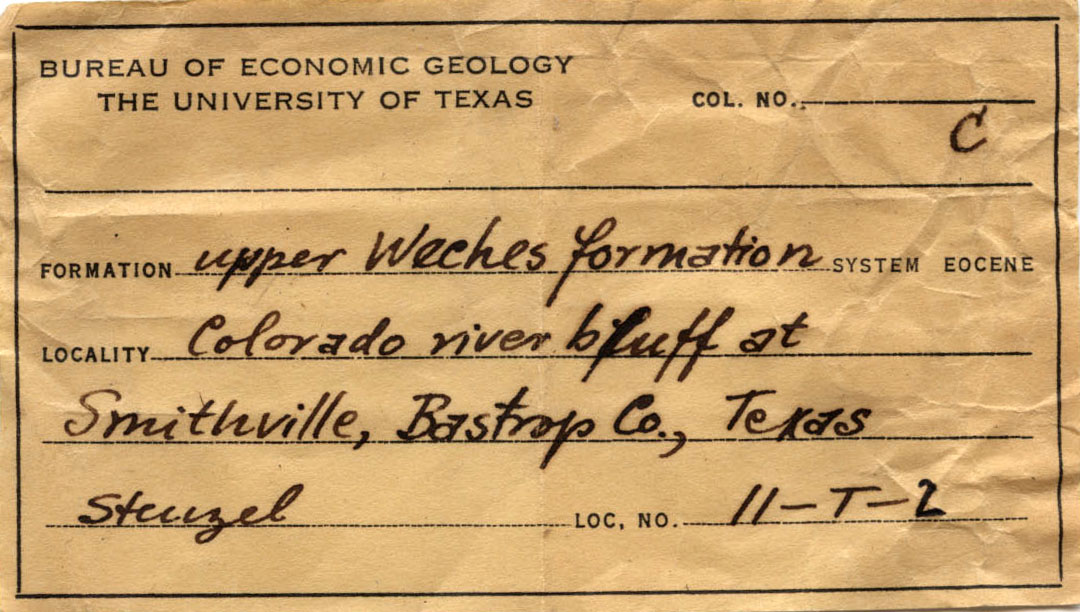 BUREAU OF ECONOMIC GEOLOGY
THE UNIVERSITY OF TEXAS
COL. NO.
C
FORMATION upper Weches formation SYSTEM EOCENE
LOCALITY Colorado river bluff at
Smithville, Bastrop Co., Texas
Stenzel LOC, NO. 11-T-2